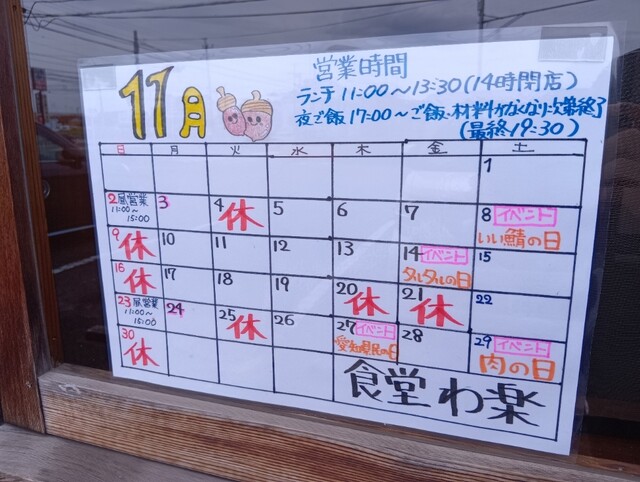 11月
営業時間
ランチ 11:00〜13:30(14時閉店)
夜ご飯 17:00〜ご飯、材料がなくなり次第終了
(最終19:30)
日 月 火 水 木 金 土
1
2 昼営業 11:00〜15:00 3 4 休 5 6 7 8 イベント いい鯖の日
9 休 10 11 12 13 14 イベント タルタルの日 15
16 休 17 18 19 20 休 21 休 22
23 昼営業 11:00〜15:00 24 25 休 26 27 イベント 愛知県民の日 28 29 イベント 肉の日
30 休
食堂 わ楽